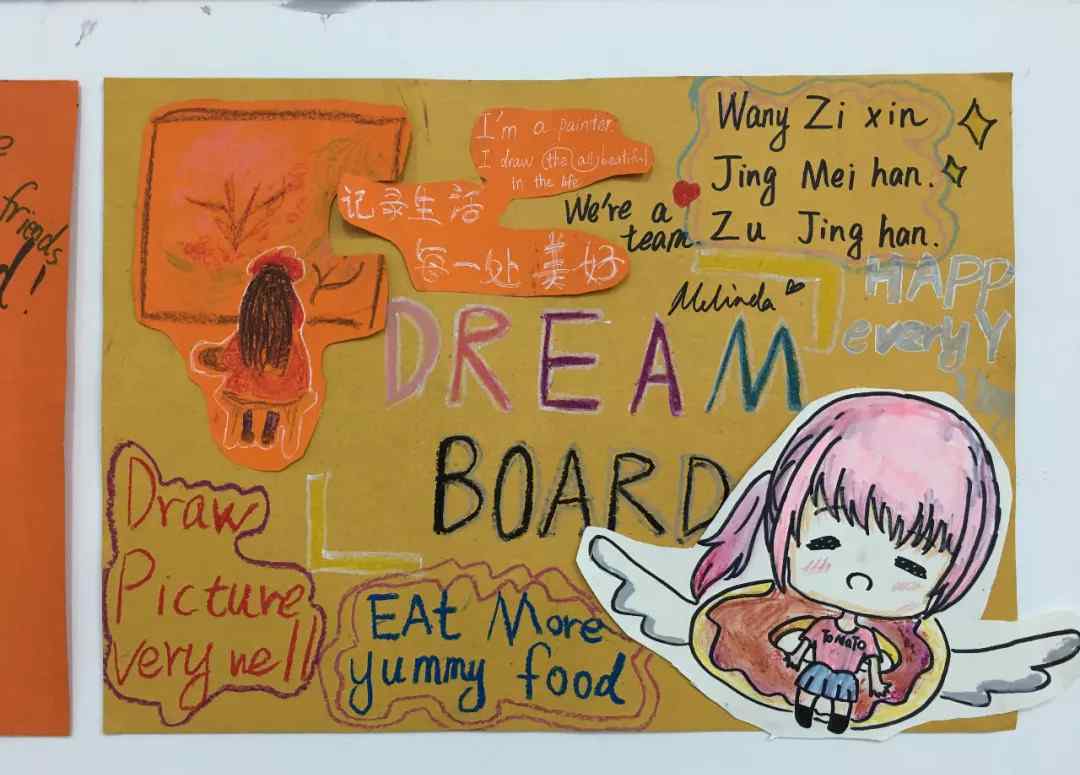 friends
I'm a painter.
I draw (the all) beautiful
in the life
记录生活
每一处 美好
We're a
team.
Wang Zi xin
Jing Mei han.
Zu Jing han.
Melinda
HAPPY
every
DREAM
BOARD
Draw
Picture
very well
EAt More
yummy food
TOMATO